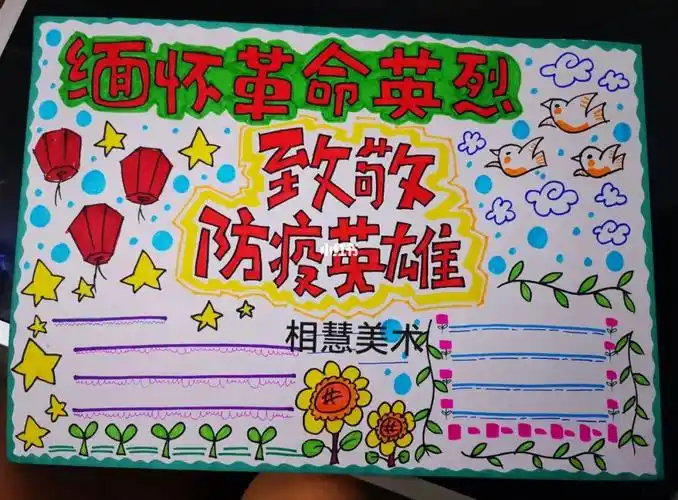 缅怀革命英烈
致敬
防疫英雄
小红书
相慧美术